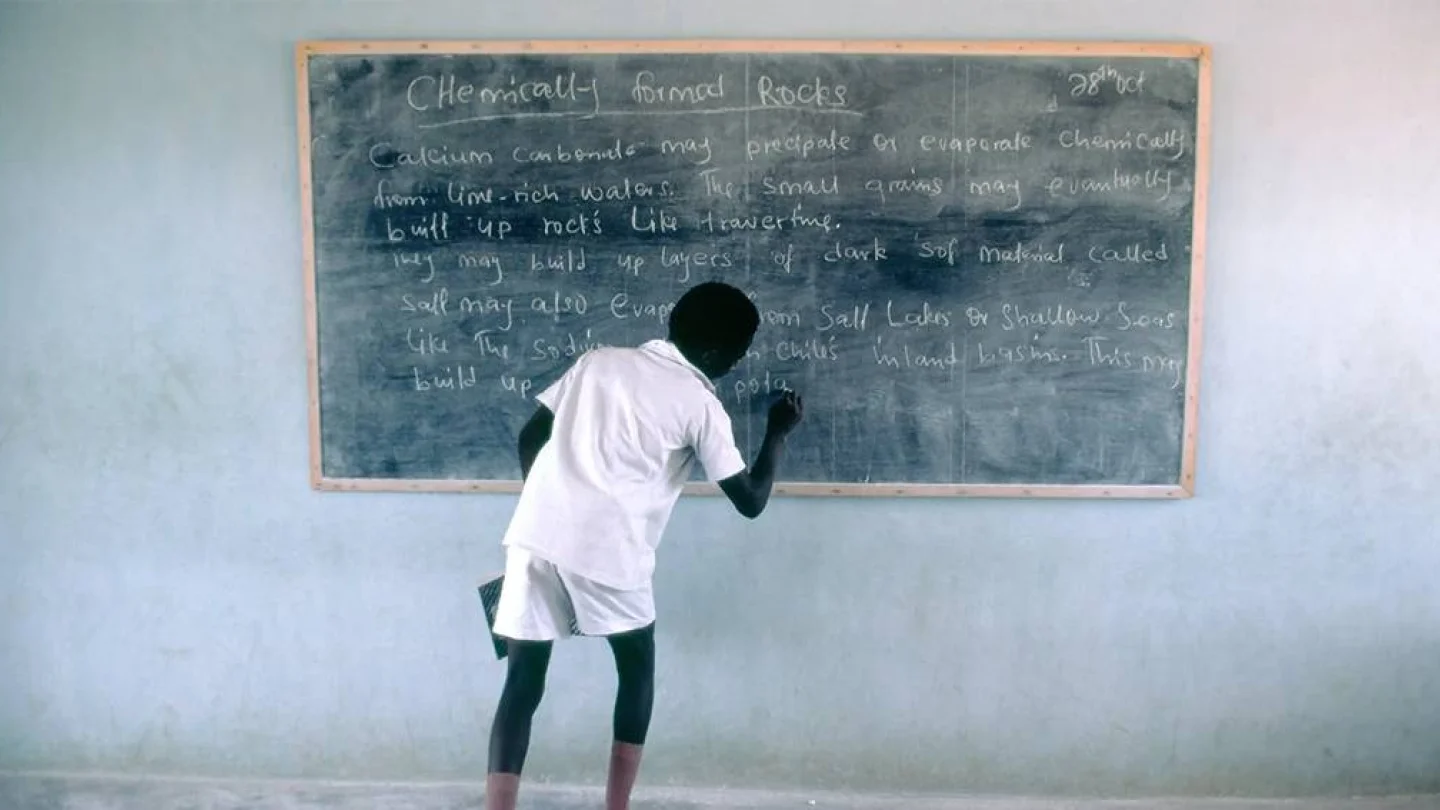 CHemically formed Rocks
28th Oct
Calcium Carbonate may precipate or evaporate chemically
from lime-rich waters. The small grains may evantually
built up rocks like travertine.
They may build up layers of dark sof material called
Salt may also evap om Salt Lakes or Shallow Seas
like The sodiu n Chile's inland basins. This may
build up pota